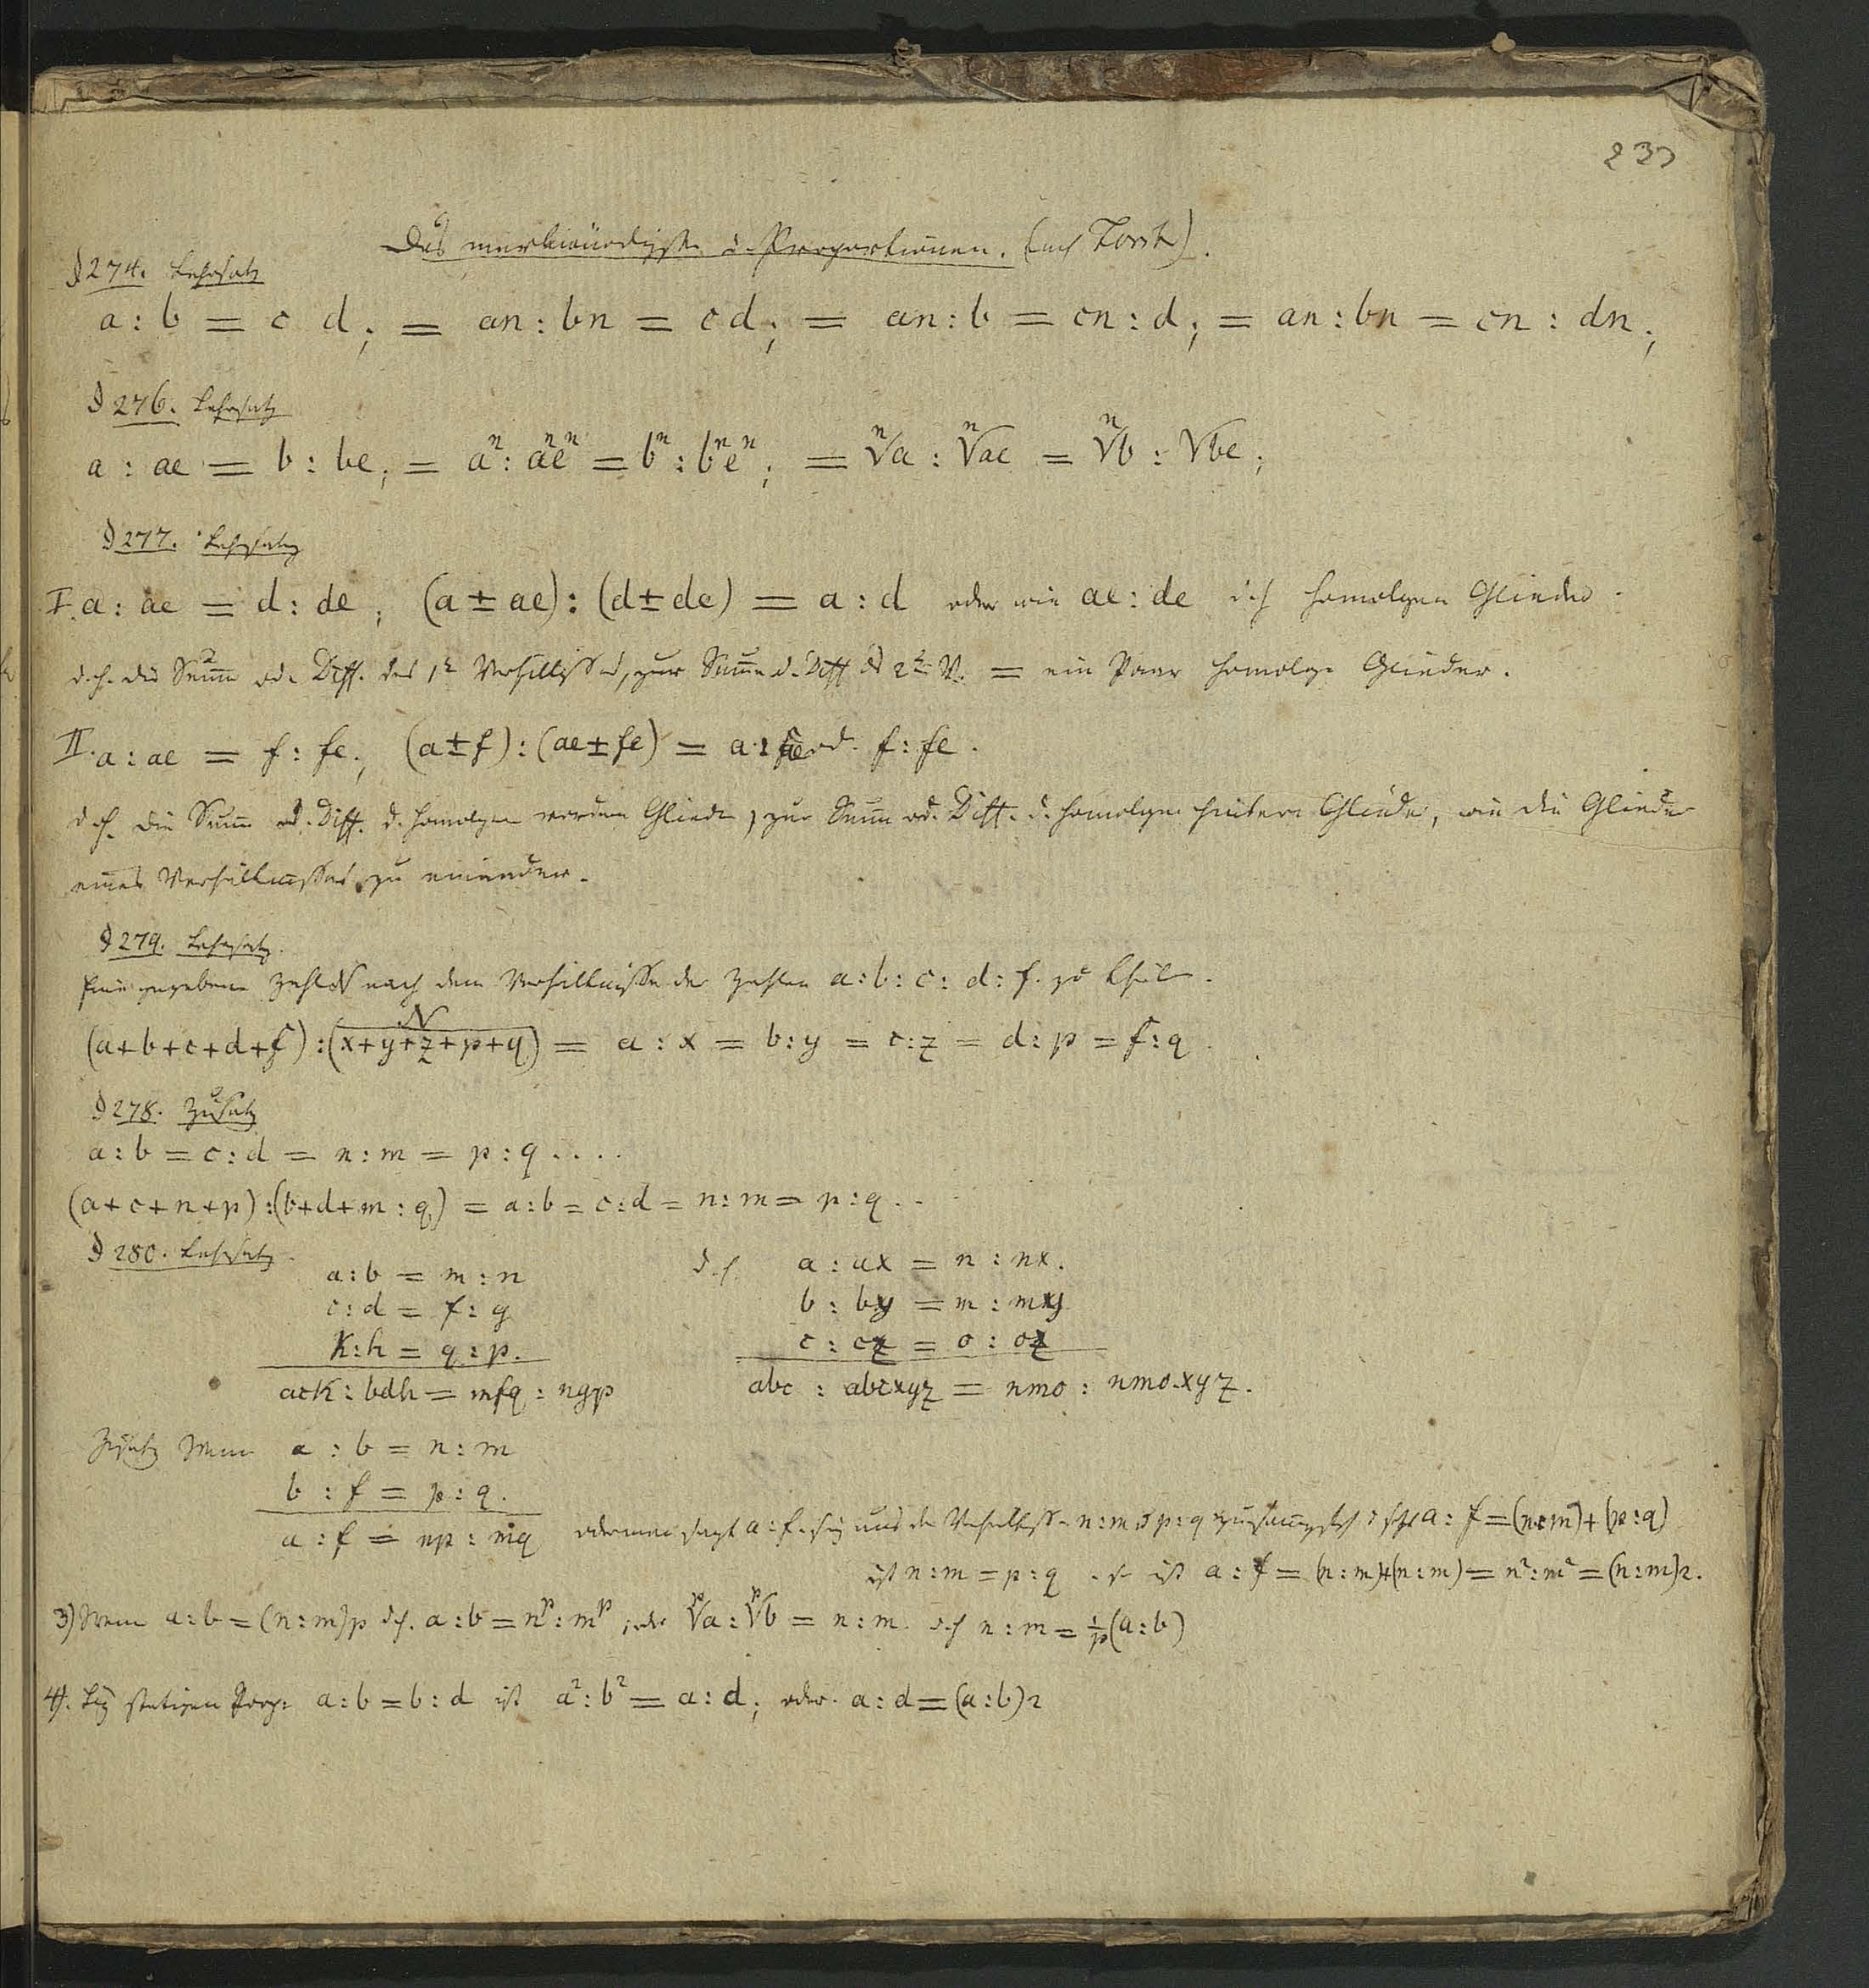 233
Das merkwürdigste d. Proportionen. (nach Lorenz).
§ 274. Lehrsatz
a : b = c d; = an : bn = c d; = an : b = cn : d; = an : bn = cn : dn;
§ 276. Lehrsatz
a : ae = b : be; = aⁿ : aⁿeⁿ = bⁿ : bⁿeⁿ; = ⁿ√a : ⁿ√ae = ⁿ√b : √be;
§ 277. Lehrsatz
I. a : ae = d : de; (a ± ae) : (d ± de) = a : d oder wie ae : de d.h. homologen Glieder.
d.h. die Summ od. Diff. des 1ⁿ Verhältnisses, zur Summ od. Diff des 2ⁿ V. = ein Paar homologe Glieder.
II. a : ae = f : fe; (a ± f) : (ae ± fe) = a : ae od. f : fe.
d.h. die Summ od. Diff. d. homologen vordern Glieder, zur Summ od. Diff. d. homologen hintern Glieder, wie die Glieder
eines Verhältnisses zu einander.
§ 279. Lehrsatz.
Eine gegebene Zahl N nach dem Verhältnisse der Zahlen a : b : c : d : f. zu theilen.
N
(a+b+c+d+f) : (x+y+z+p+q) = a : x = b : y = c : z = d : p = f : q.
§ 278. Zusatz
a : b = c : d = n : m = p : q ....
(a+c+n+p) : (b+d+m : q) = a : b = c : d = n : m = p : q ..
§ 280. Lehrsatz.
a : b = m : n d.h. a : ax = n : nx.
c : d = f : g b : by = m : my
k : h = q : p. c : cz = o : oz
ack : bdh = mfq : ngp abc : abcxyz = nmo : nmo.xyz.
Zusatz Wenn a : b = n : m
b : f = p : q.
a : f = np : mq oder man sagt a : f sey aus den Verhältnissen n : m, p : q zusammengesetzt a : f = (n : m) + (p : q)
ist n : m = p : q so ist a : f = (n : m)+(n : m) = n² : m² = (n : m)2.
3) Wenn a : b = (n : m)p d.h. a : b = nᵖ : mᵖ; oder ᵖ√a : ᵖ√b = n : m. d.h. n : m = 1/p (a : b)
4). Bey stetigen Prop: a : b = b : d ist a² : b² = a : d; oder. a : d = (a : b)2